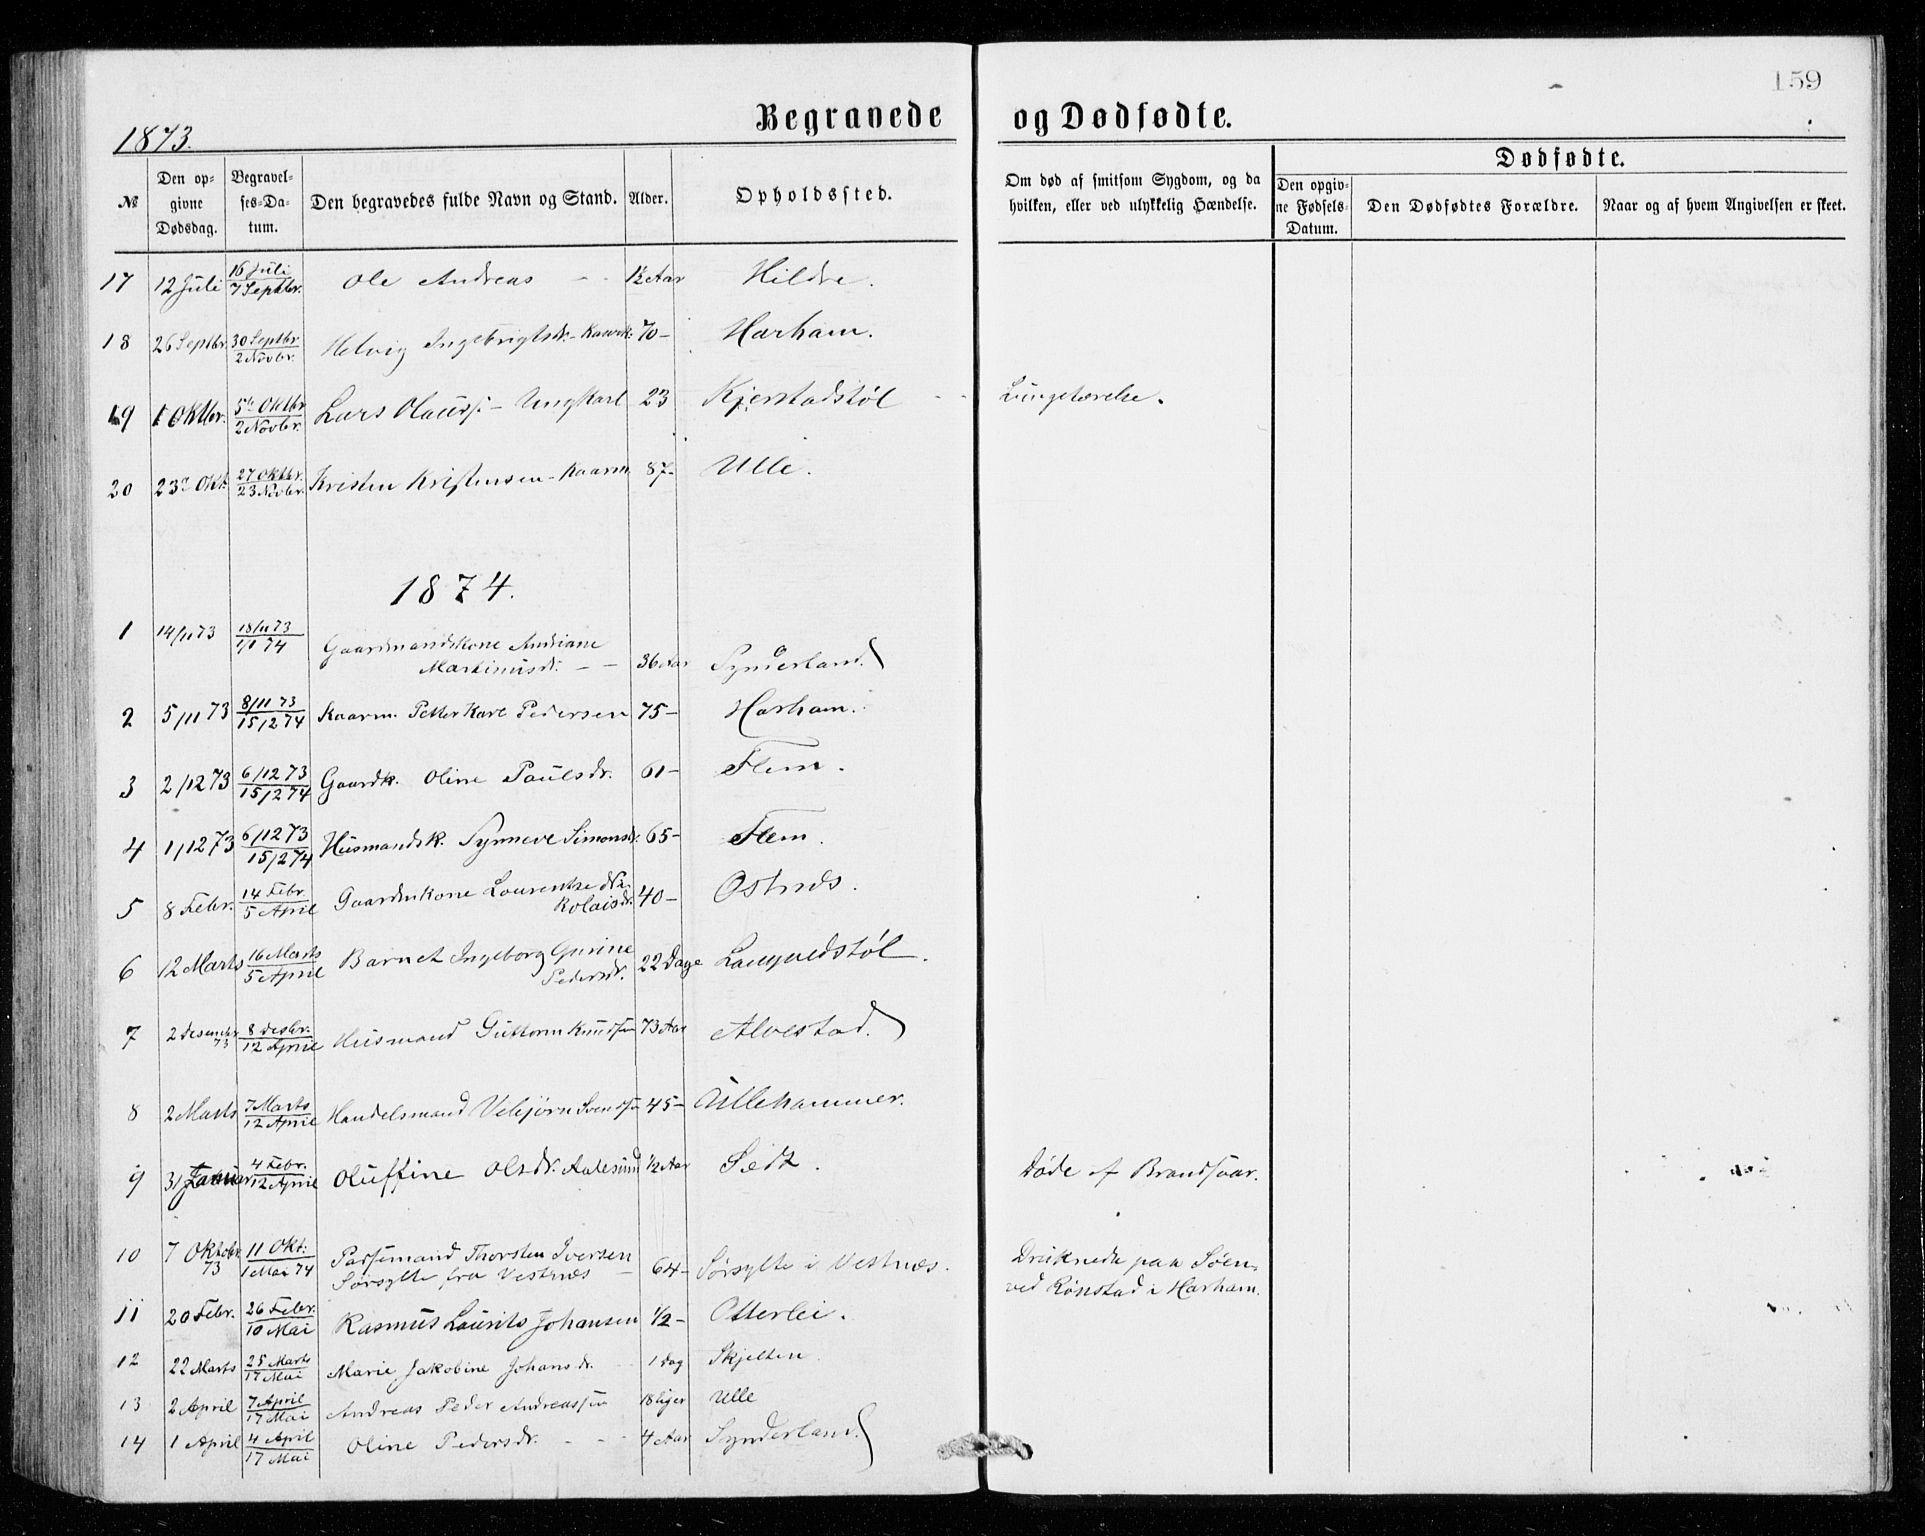 159
Begravede og Dødfødte.
1873.
Dødfødte.
№ Den opgivne Dødsdag. Begravelses-Datum. Den begravedes fulde Navn og Stand. Alder. Opholdssted. Om død af smitsom Sygdom, og da hvilken, eller ved ulykkelig Hændelse. Den opgivne Fødsels-Datum. Den Dødfødtes Forældre. Naar og af hvem Angivelsen er skeet.
17 12 Juli 16 Juli 7 Septbr. Ole Andreas - - 1½ Aar Hildre.
18 26 Septbr. 30 Septbr 2 Novbr. Helvig Ingebrigtsdr. - Kaark. 70 - Harham.
19 1 Oktbr. 5te Oktbr 2 Novbr. Lars Olauss. - Ungkarl 23 Kjerstadstøl - - Lungetærelse.
20 23de Okt. 27 Oktbr. 23 Novbr. Kristen Kristensen - Kaarm. 87 - Ulle.
1874.
1 14/11 73 18/11 73 1/1 74 Gaardmandskone Andriane
Martinusdr. - - 36 Aar Synderland.
2 5/11 73 8/11 73 15/2 74 Kaarm. Petter Karl Pedersen 75 - Harham.
3 2/12 73 6/12 73 15/2 74 Gaardk. Oline Paulsdr. 61 - Flem.
4 1/12 73 6/12 73 15/2 74 Husmandsk. Synneve Simonsdr. 65 - Flem.
5 8 Febr. 14 Febr. 5 April Gaardmkone Laurentse Ni-
kolaisdr. 40 - Ostnes.
6 12 Marts 16 Marts 5 April Barnet Ingeborg Gurine
Pedersdr. 22 Dage Langvedstøl.
7 2 Desember 73 8 Desbr. 12 April Husmand Guttorm Knudssen 73 Aar Alvestad.
8 2 Marts 7 Marts 12 April Handelsmand Vebjørn Svendssen 45 - Ullehammer.
9 31 Januar 4 Febr. 12 April Oluffine Olsdr. Aalesund ½ Aar Sedz. Døde af Brandsaar.
10 7 Oktober 73 11 Okt: 1 Mai 74 Partsemand Thorsten Iversen
Sørsylte fra Vestnæs - 64 - Sørsylte i Vestnæs. Druknede paa Søen
ved Rønstad i Harham.
11 20 Febr. 26 Febr. 10 Mai Rasmus Laurits Johansen ½ - Otterlei.
12 22 Marts 25 Marts 17 Mai Marie Jakobine Johansdr. 1 Dag Skjelten
13 2 April 7 April 17 Mai Andreas Peder Andreassen 18 Uger Ulle
14 1 April 4 April 17 Mai Oline Pedersdr. - - 4 Aar Synderland.